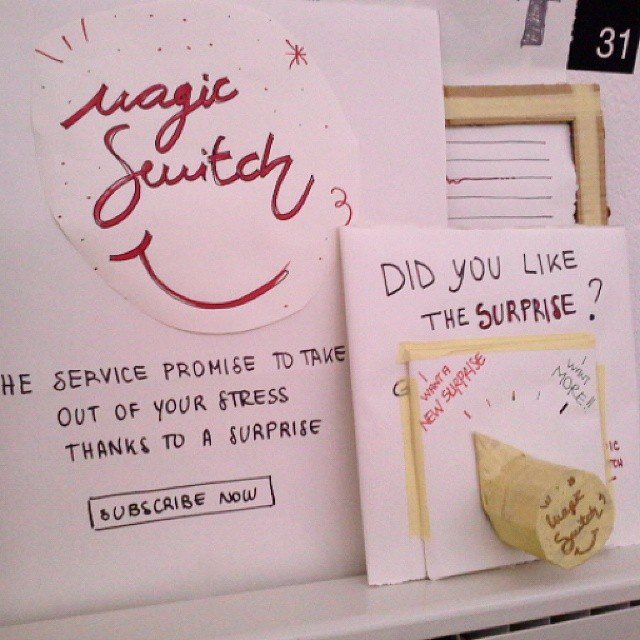 magic
Switch
HE SERVICE PROMISE TO TAKE
OUT OF YOUR STRESS
THANKS TO A SURPRISE
SUBSCRIBE NOW
31
DID YOU LIKE
THE SURPRISE?
I
WANT A
NEW SURPRISE
I
WANT
MORE!!
magic
Switch